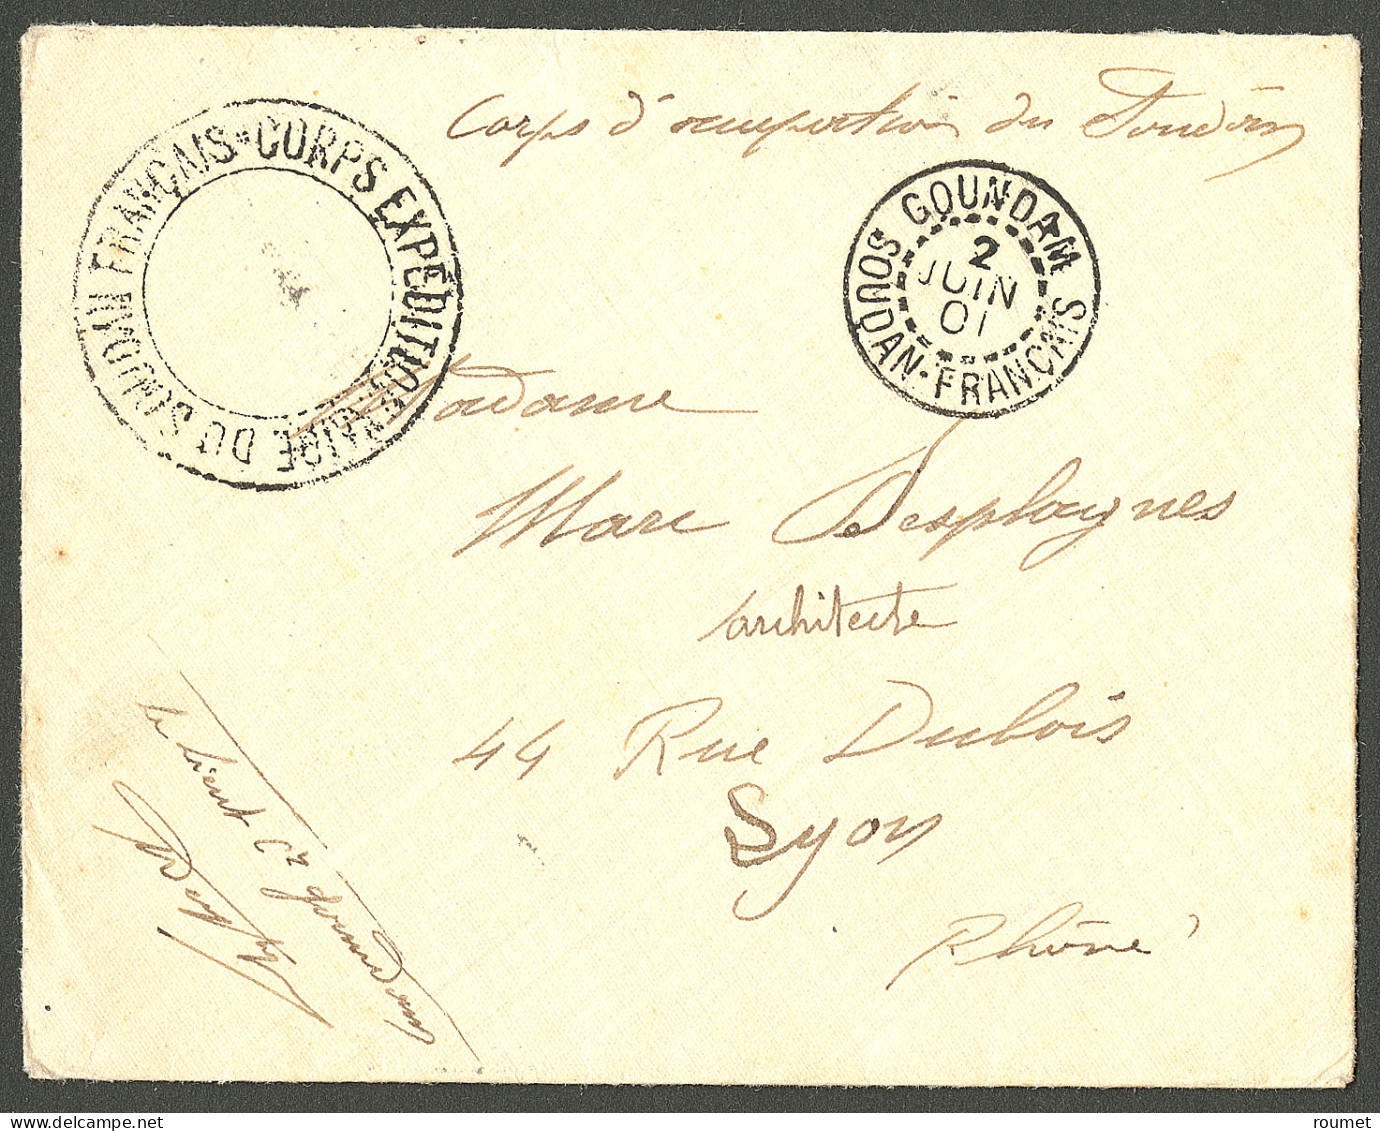 Corps d'occupation du Soudan
CORPS EXPÉDITIONNAIRE DU SOUDAN FRANÇAIS
GOUNDAM
2
JUIN
01
SOUDAN-FRANÇAIS
Madame
Marc Desplagnes
architecte
44 Rue Dubois
Lyon
Rhône
le Lieut Ct Goundam
© roumet